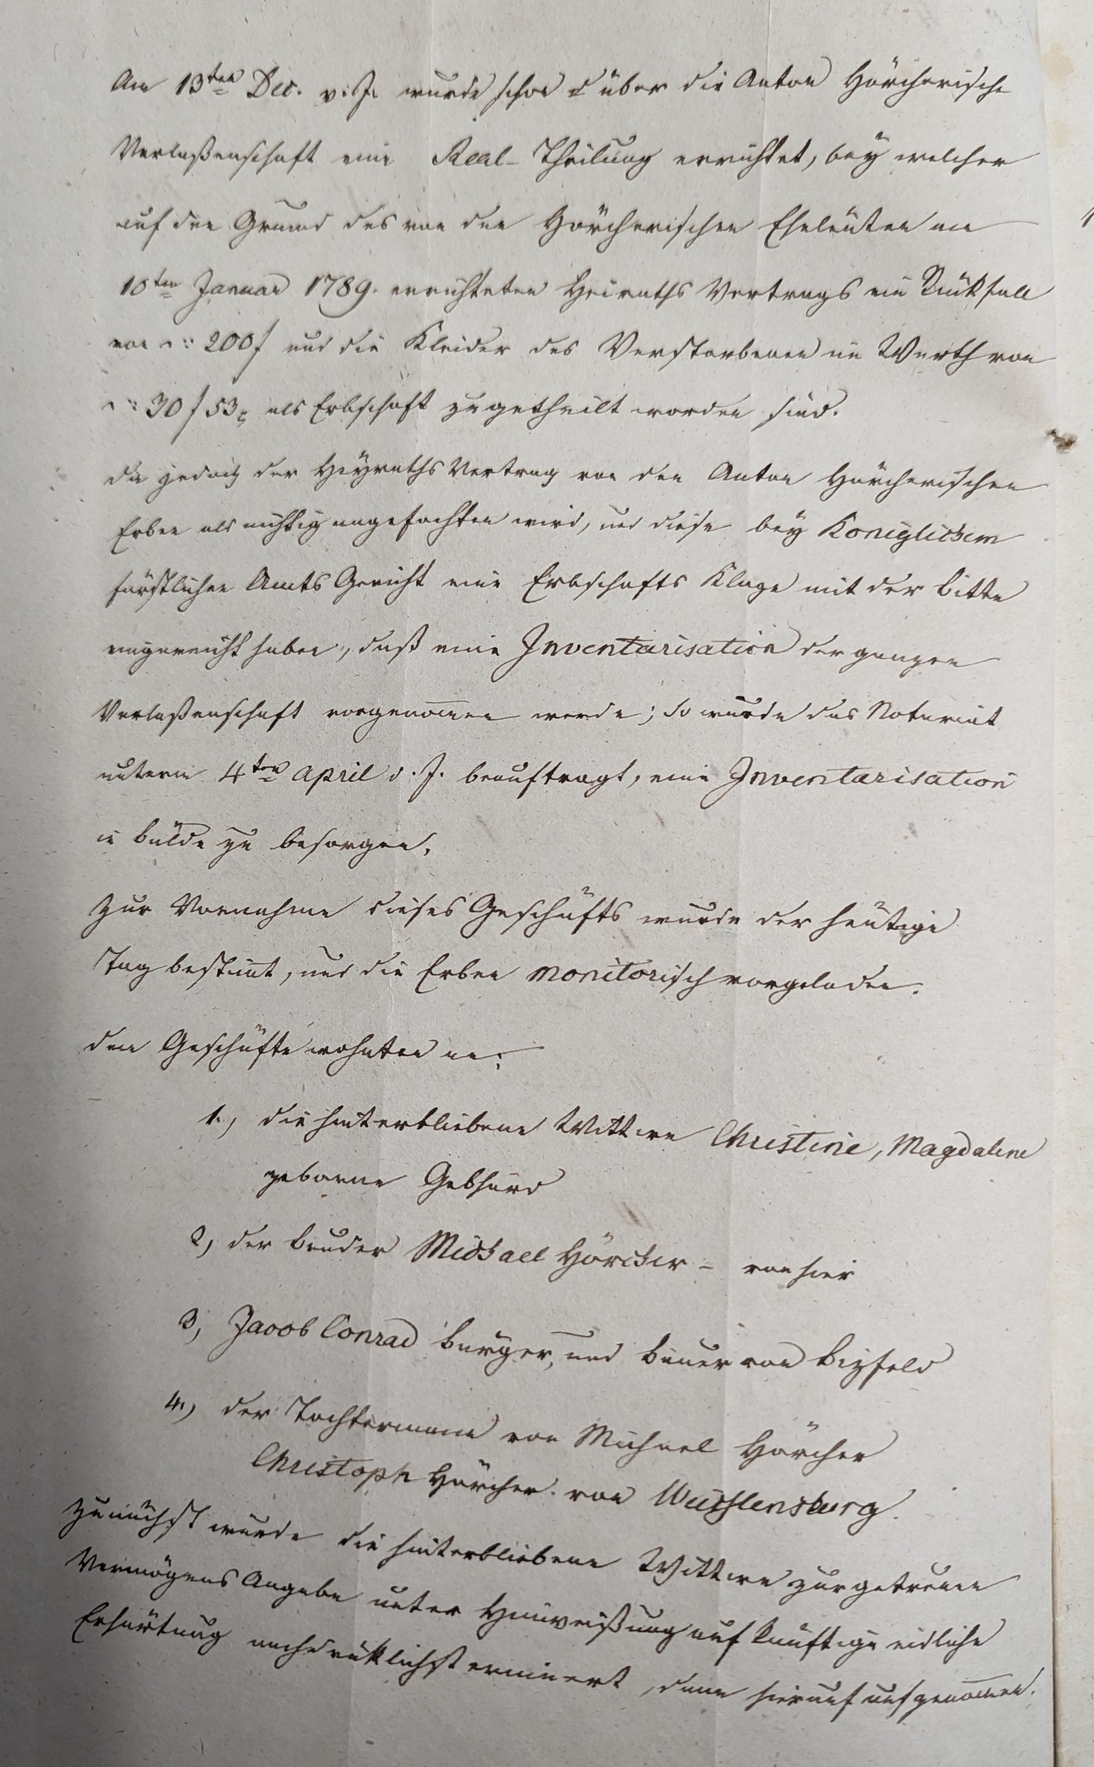 Am 13ten Dec. v. J. wurde schon über die Anton Hörcherische
Verlaßenschaft eine Real-Theilung errichtet, bey welcher
auf den Grund des von den Hörcherischen Eheleuten am
10ten Januar 1789. errichteten Heiraths Vertrags ein Rückfall
von -:: 200 f und die Kleider des Verstorbenen im Werth von
-:: 30 f 53 x als Erbschaft zugetheilt worden sind.
Da jedoch der Heyraths Vertrag von den Anton Hörcherischen
Erben als nichtig angefochten wird, und diese bey Königlichem
fürstlichen Amts Gericht eine Erbschafts Klage mit der Bitte
eingereicht haben, daß eine Inventarisation der ganzen
Verlaßenschaft vorgenommen werde; so wurde das Notariat
unterm 4ten April d. J. beauftragt, eine Inventarisation
in Bälde zu besorgen.
Zur Vornahme dieses Geschäfts wurde der heutige
Tag bestimt, und die Erben monitorisch vorgeladen.
Dem Geschäfte wohnten an:
1., die hinterbliebene Wittwe Christine, Magdalene
geborne Gebhard
2, der Bruder Michael Hörcher - von hier
3, Jacob Conrad Burger, und Bauer von Bizfeld
4., der Tochtermann von Michael Hörcher
Christoph Hörcher. von Wuchlensburg.
Zunächst wurde die hinterbliebene Wittwe zur getreuen
Vermögens Angabe unter Hinweißung auf künftige eidliche
Erhärtung nachdrücklichst erinnert, dann hierauf aufgenommen.